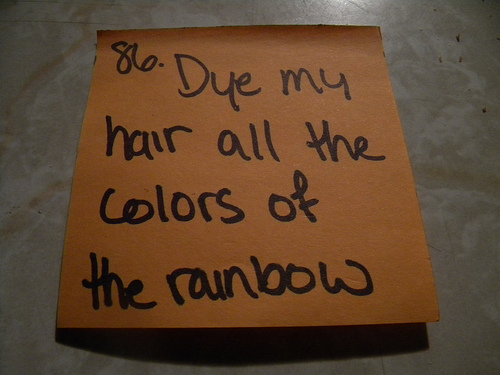 86. Dye my
hair all the
colors of
the rainbow